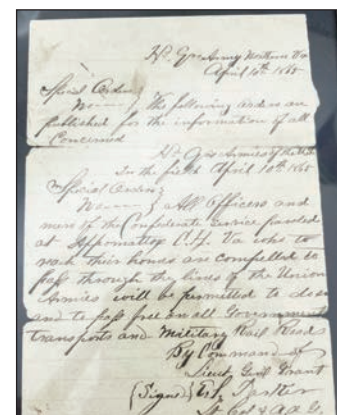 Hd Qrs Army Northern Va
April 10th 1865
Special Orders
No The following orders are
published for the information of all
Concerned
Hd Qrs Armies of the U.S.
In the field April 10th 1865
Special Orders
No All Officers and
men of the Confederate Service paroled
at Appomattox C.H. Va who to
reach their homes are compelled to
Pass through the lines of the Union
Armies will be permitted to do so
and to pass free on all Government
transports and Military Rail Roads
By Command of
Lieut Genl Grant
(Signed) Parker
Lt Col & A.A.G.